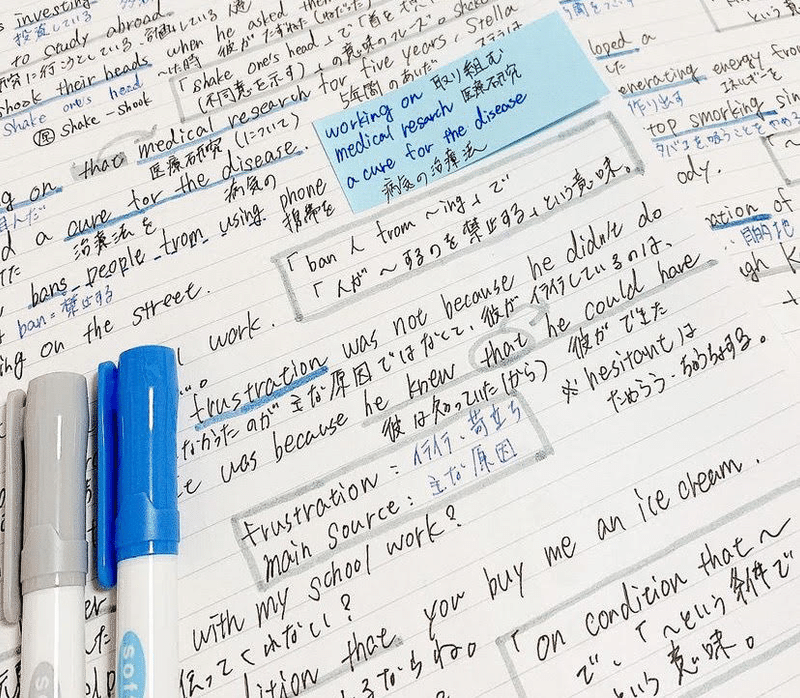 investing
投資している
to study abroad
研究に行こうとしている
when he asked them
shook their heads
彼がたずねた
shake one's head
原 shake-shook
「shake one's head」で「首を
(不同意を示す)」の意味のフレーズ。
that medical research for five years, Stella
医療研究 (について) 5年間のあいだ
working on 取り組む
medical resarch 医療研究
a cure for the disease
病気の治療法
on
a cure for the disease.
治療法を 病気の
bans people from using phone
ban = 禁止する 携帯を
on the street.
「ban 人 from ～ing」で
「人が～するのを禁止する」という意味。
loped a
enerating energy from
作り出す エネルギーを
top smorking
タバコを吸うことをやめる
ody.
ration of
work.
frustration was not because he didn't do
主な原因ではなくて、彼が
was because he knew that he could have
彼は知っていた(から) 彼ができた
※hesitantは
ためらう・ちゅうちょする。
frustration: 苛立ち
main source: 主な原因
with my school work?
くれない?
dition that you buy me an ice cream.
ならね。
「on condition that～
で、「～という条件で
という意味。
sof